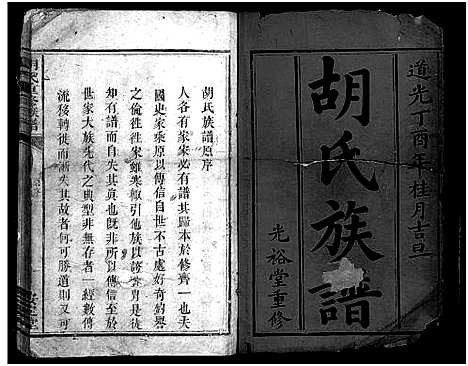 道光丁酉年桂月吉旦
胡氏族譜
光裕堂重修
胡氏族譜原序
人各有家家必有譜其歸本於修齊一也夫
國史家乘原以傳信自世不古處好奇釣譽
之倫徃徃宋雖寒畯引他族以誇宗是徒
知有譜而自失其真也既非所以傳信至於
世家大族先代之典型非無存者一經數傳
流移轉徙而漸失其故者何可勝道則又可